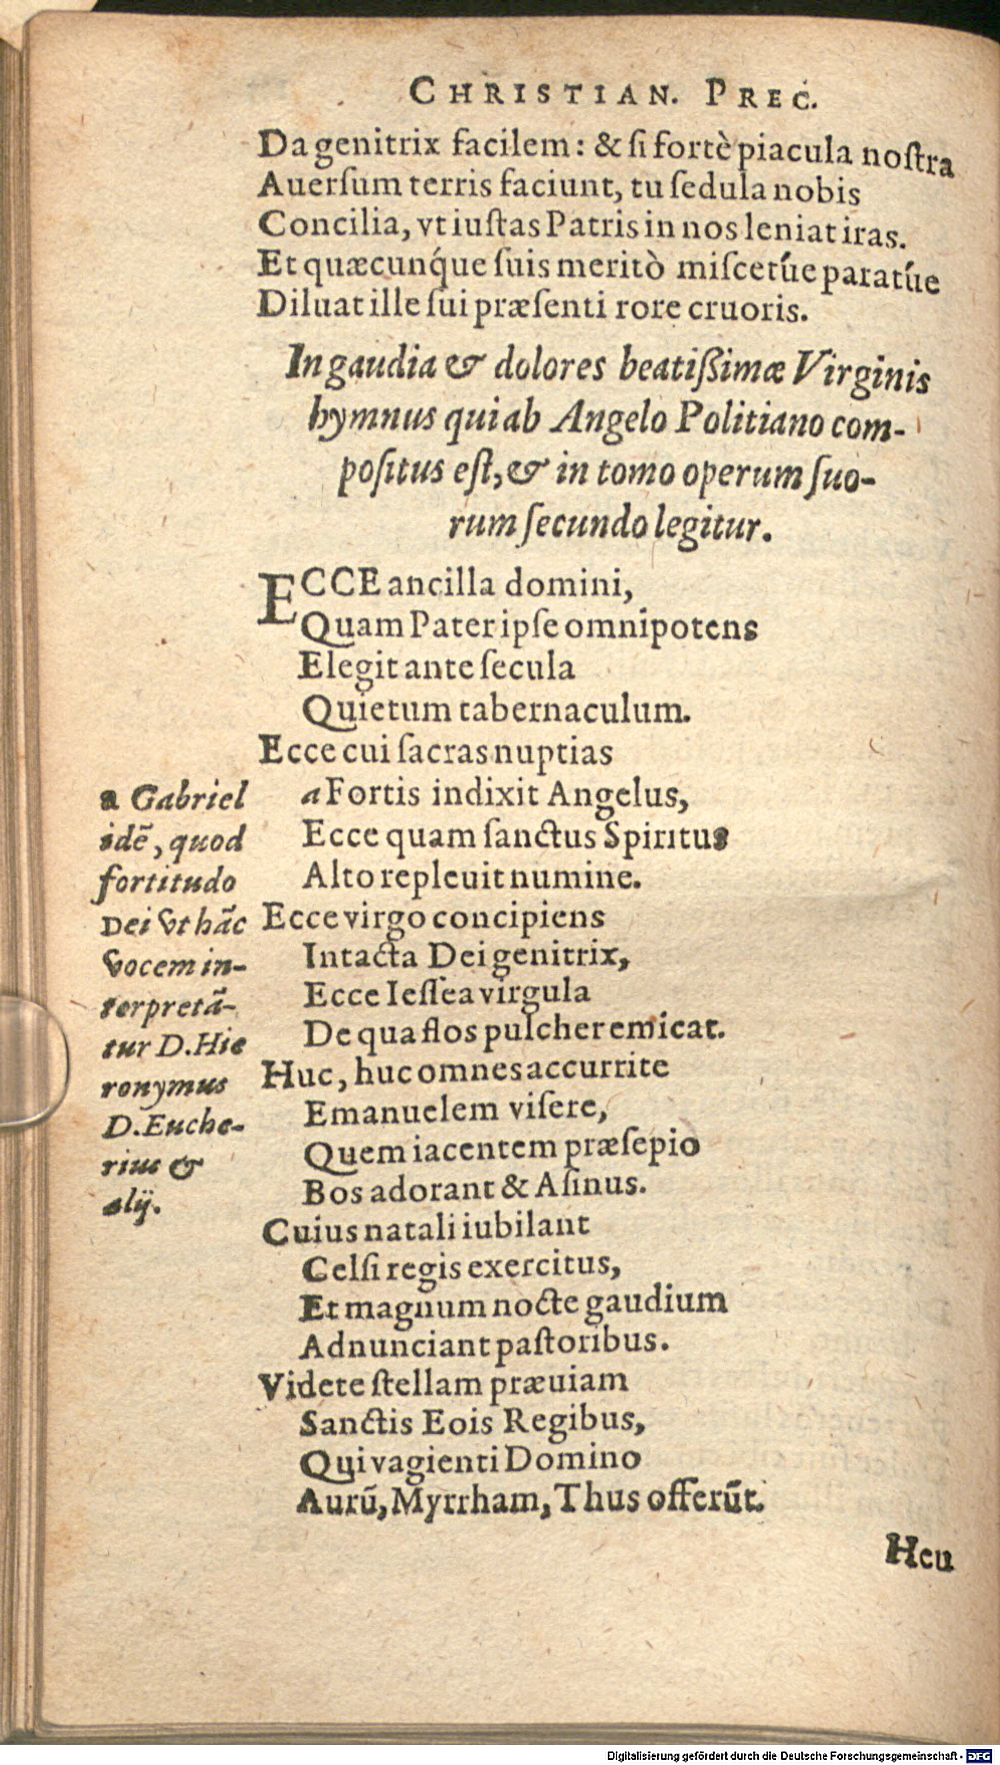 CHRISTIAN. PREC.
Da genitrix facilem: & ſi fortè piacula noſtra
Auerſum terris faciunt, tu ſedula nobis
Concilia, vt iuſtas Patris in nos leniat iras.
Et quæcunq́ue ſuis meritò miſcetúe paratúe
Diluat ille ſui præſenti rore cruoris.
In gaudia & dolores beatißimæ Virginis
hymnus qui ab Angelo Politiano com-
poſitus eſt, & in tomo operum ſuo-
rum ſecundo legitur.
ECCE ancilla domini,
Quam Pater ipſe omnipotens
Elegit ante ſecula
Quietum tabernaculum.
Ecce cui ſacras nuptias
a Fortis indixit Angelus,
Ecce quam ſanctus Spiritus
Alto repleuit numine.
Ecce virgo concipiens
Intacta Dei genitrix,
Ecce Ieſſea virgula
De qua flos pulcher emicat.
Huc, huc omnes accurrite
Emanuelem viſere,
Quem iacentem præſepio
Bos adorant & Aſinus.
Cuius natali iubilant
Celſi regis exercitus,
Et magnum nocte gaudium
Adnunciant paſtoribus.
Videte ſtellam præuiam
Sanctis Eois Regibus,
Qui vagienti Domino
Aurū, Myrrham, Thus offerūt.
a Gabriel
idē, quod
fortitudo
Dei vt hāc
vocem in-
terpretā-
tur D. Hie
ronymus
D. Euche-
rius &
alij.
Heu
Digitalisierung gefördert durch die Deutsche Forschungsgemeinschaft - DFG